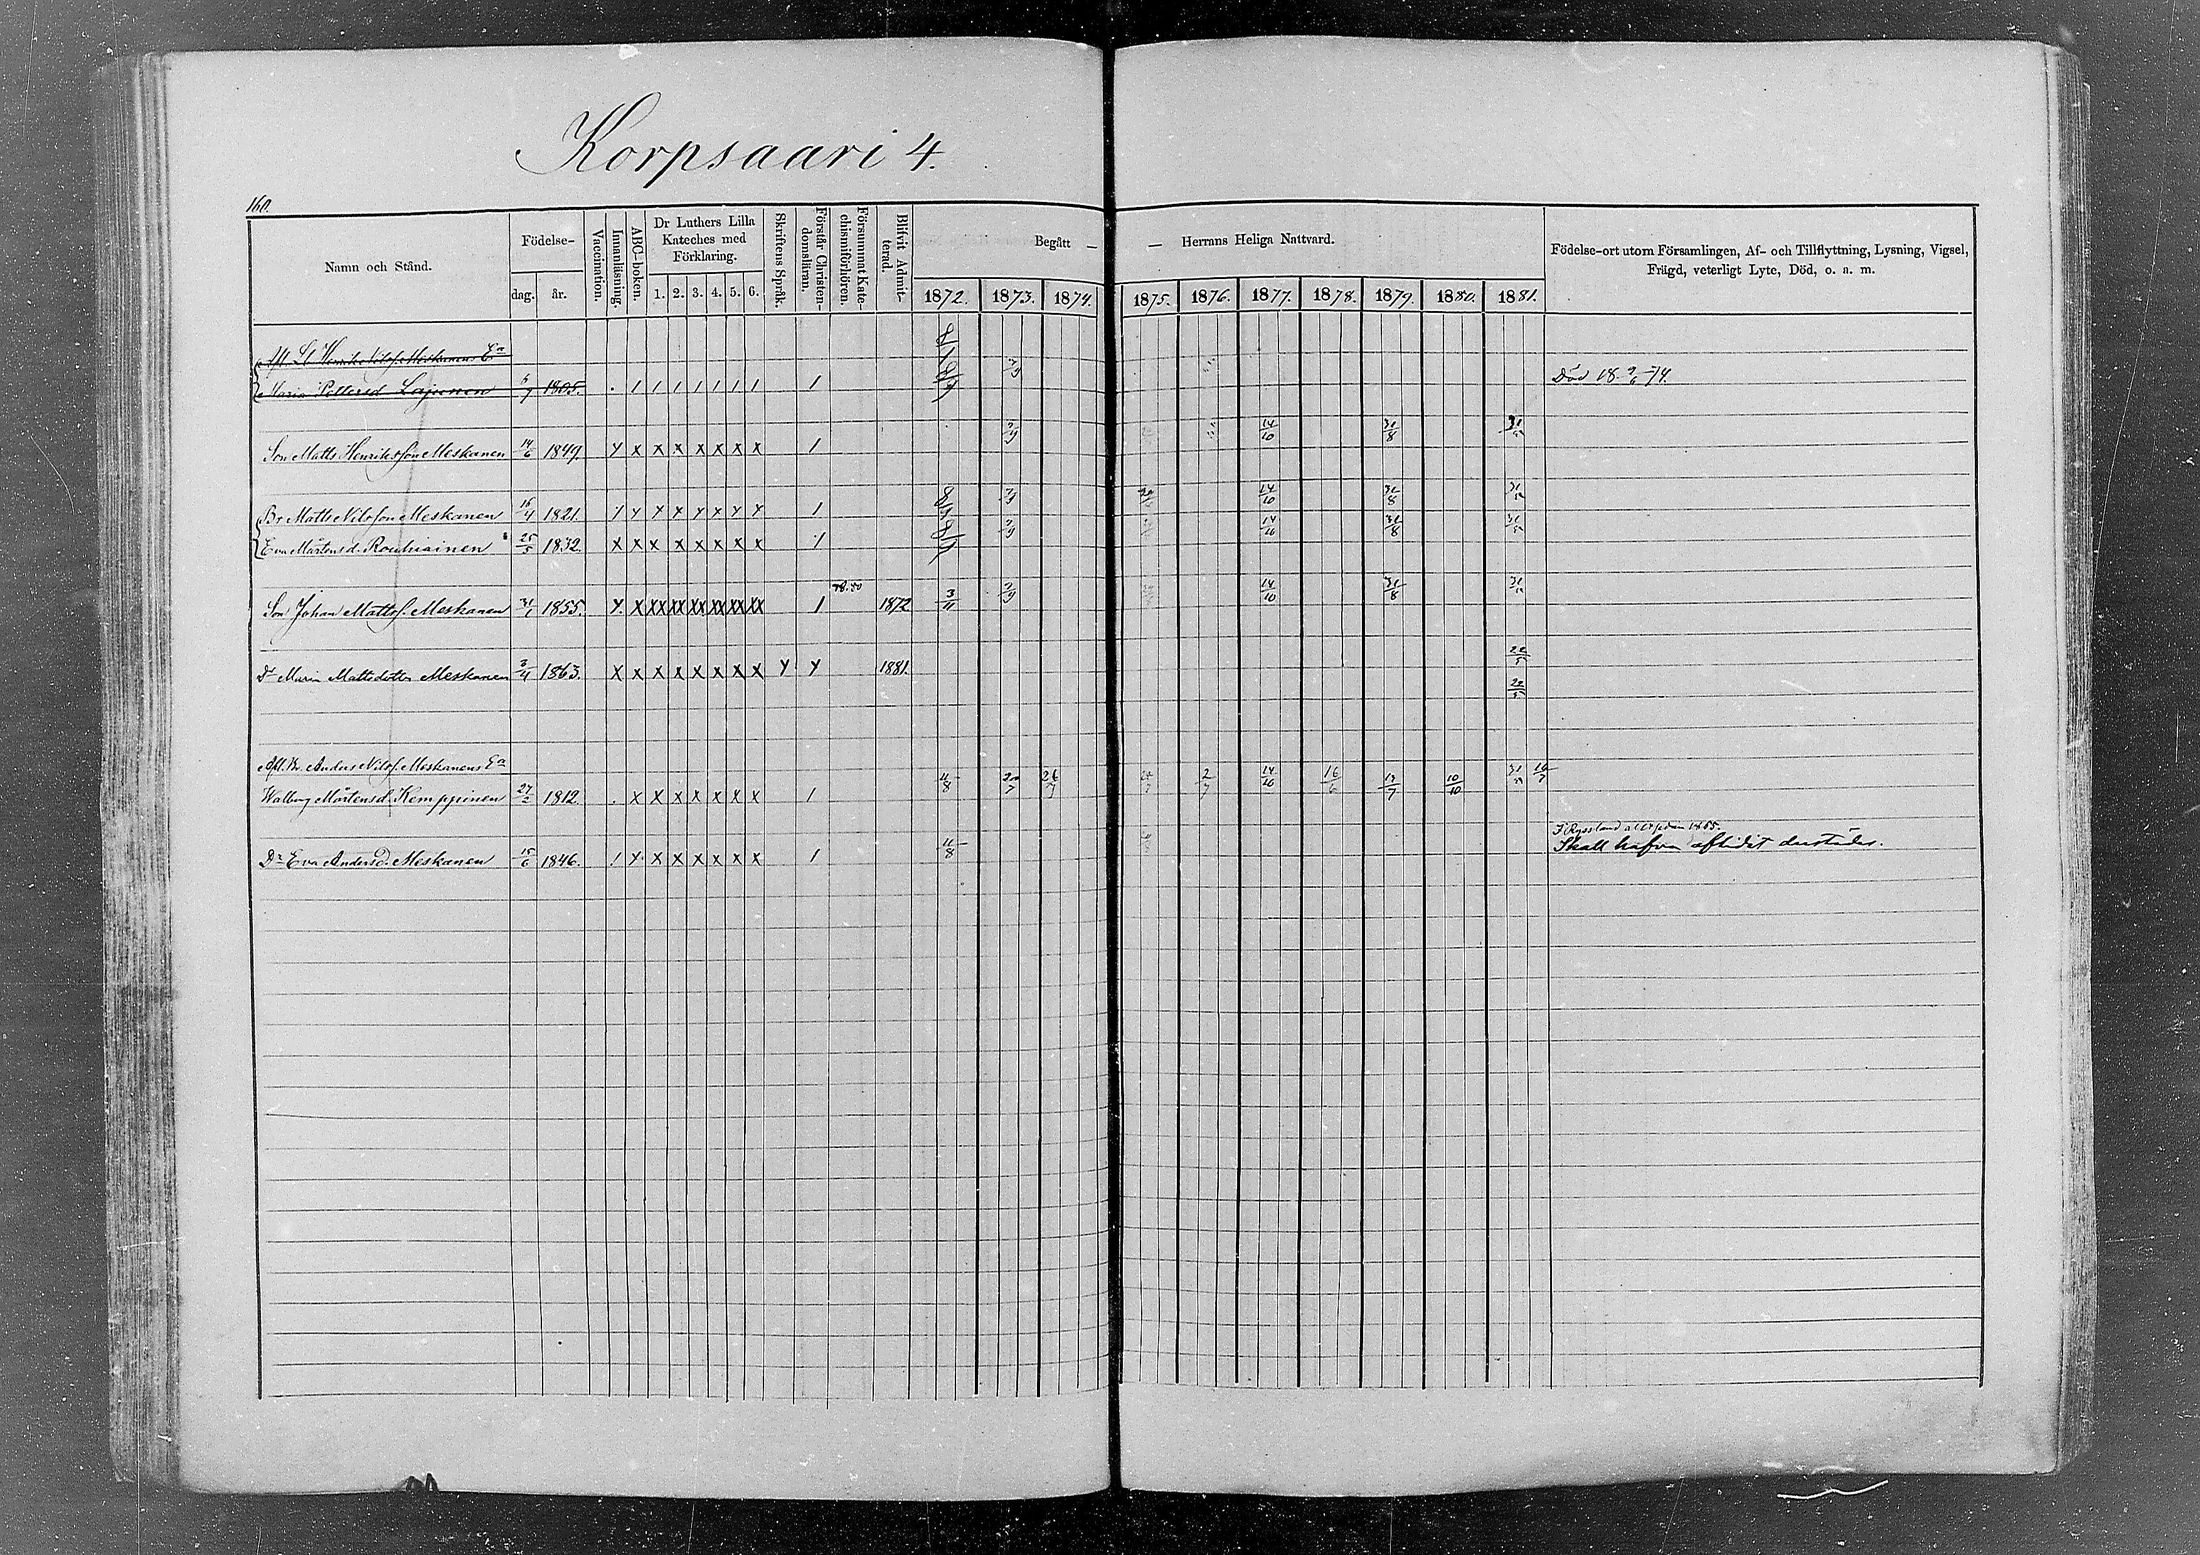 Korpsaari 4.
160.
Namn och Stånd.
Födelse-
dag.
år.
Vaccination.
Innanläsning.
ABC-boken.
Dr Luthers Lilla
Kateches med
Förklaring.
1. 2. 3. 4. 5. 6.
Skriftens Språk.
Förstår Christen-
domsläran.
Försummat Kate-
chismiförhören.
Blifvit Admit-
terad.
Begått —
— Herrans Heliga Nattvard.
1872. 1873. 1874. 1875. 1876. 1877. 1878. 1879. 1880. 1881.
Födelse-ort utom Församlingen, Af- och Tillflyttning, Lysning, Vigsel,
Frägd, veterligt Lyte, Död, o. a. m.
Henriks Nilsf. Meskanens Ea
Maria Pettersd Lajunen 1805. 1 1 1 1 1 1 1 1 Död 18 9/6 74.
Son Matts Henriksson Meskanen 14/6 1849. x x x x x x x 1 14/10 31/8
Br Matts Nilsson Meskanen 16/4 1821. 1 14/10 31/8
Eva Mårtensd. Rouhiainen 25/5 1832. x x x x x x x x 1 14/10 31/8
Son Johan Mattsf. Meskanen 31/1 1855. x xx xx xx xx xx xx 1 1872 3/11 14/10 31/8
Dr Maria Mattsdotter Meskanen 3/4 1863. x x x x x x x x 1881. 22/5
22/5
Afl. Br. Anders Nilsf. Meskanens Ea
Walborg Mårtensd. Kemppinen 27/2 1812. x x x x x x x 1 11/8 20/7 26/7 2/7 14/10 16/6 13/7 10/10 16/7
Dr Eva Andersd. Meskanen 15/6 1846. x x x x x x 1 11/8
I Ryssland allt sedan 1865.
Skall hafva aflidit derstädes.